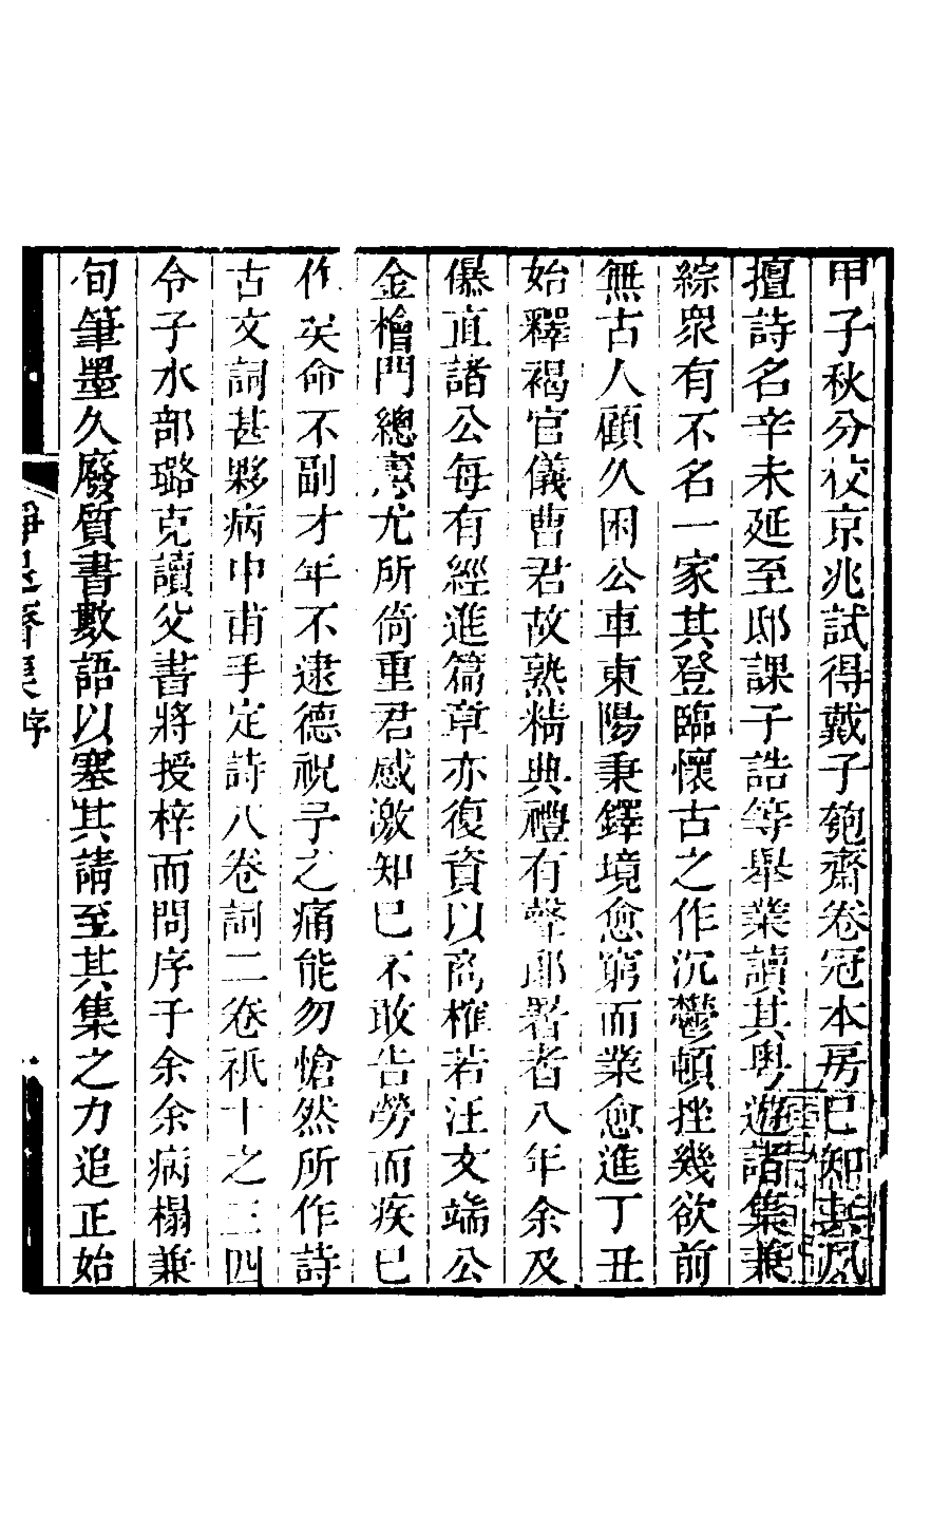 甲子秋分校京兆試得戴子匏齋卷冠本房已知其夙
擅詩名辛未延至邸課子誥等舉業讀其粵遊諸集兼
綜衆有不名一家其登臨懷古之作沉鬱頓挫幾欲前
無古人顧久困公車東陽秉鐸境愈窮而業愈進丁丑
始釋褐官儀曹君故熟精典禮有聲郎署者八年余及
儤直諸公每有經進篇章亦復資以商榷若汪文端公
金檜門總憲尤所倚重君感激知已不敢告勞而疾已
作矣命不副才年不逮德祝予之痛能勿愴然所作詩
古文詞甚夥病中甫手定詩八卷詞二卷祇十之三四
令子水部璐克讀父書將授梓而問序于余余病榻兼
旬筆墨久廢質書數語以塞其請至其集之力追正始
齋集 序